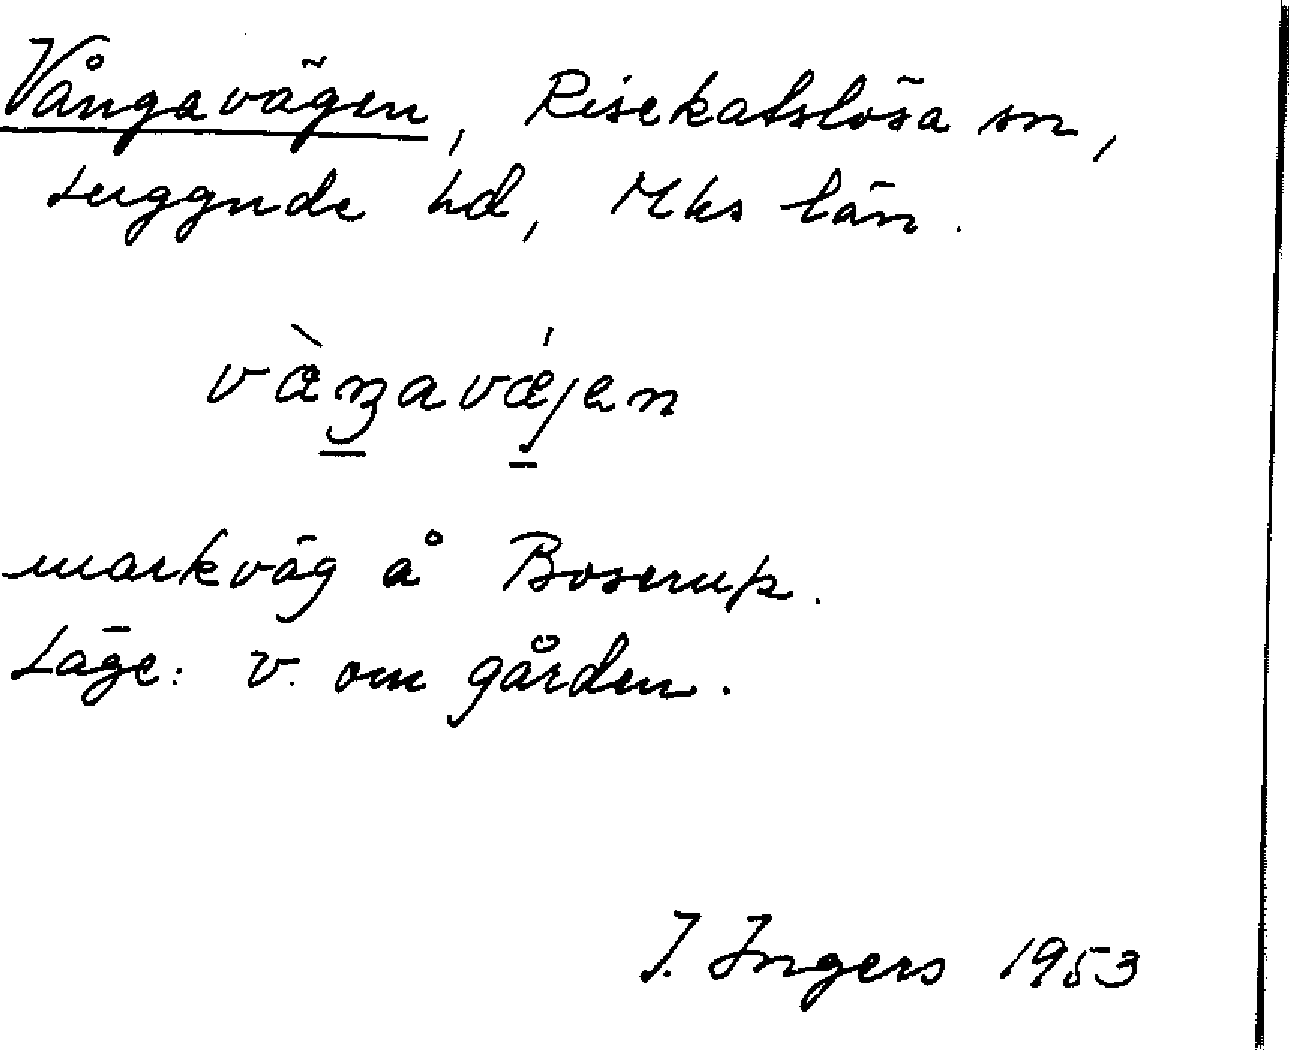 Vångavägen, Risekatslösa sn,
Luggude hd, Mhs län.
vàŋavǽjen
markväg å Boserup.
Läge: v. om gården.
I. Ingers 1953